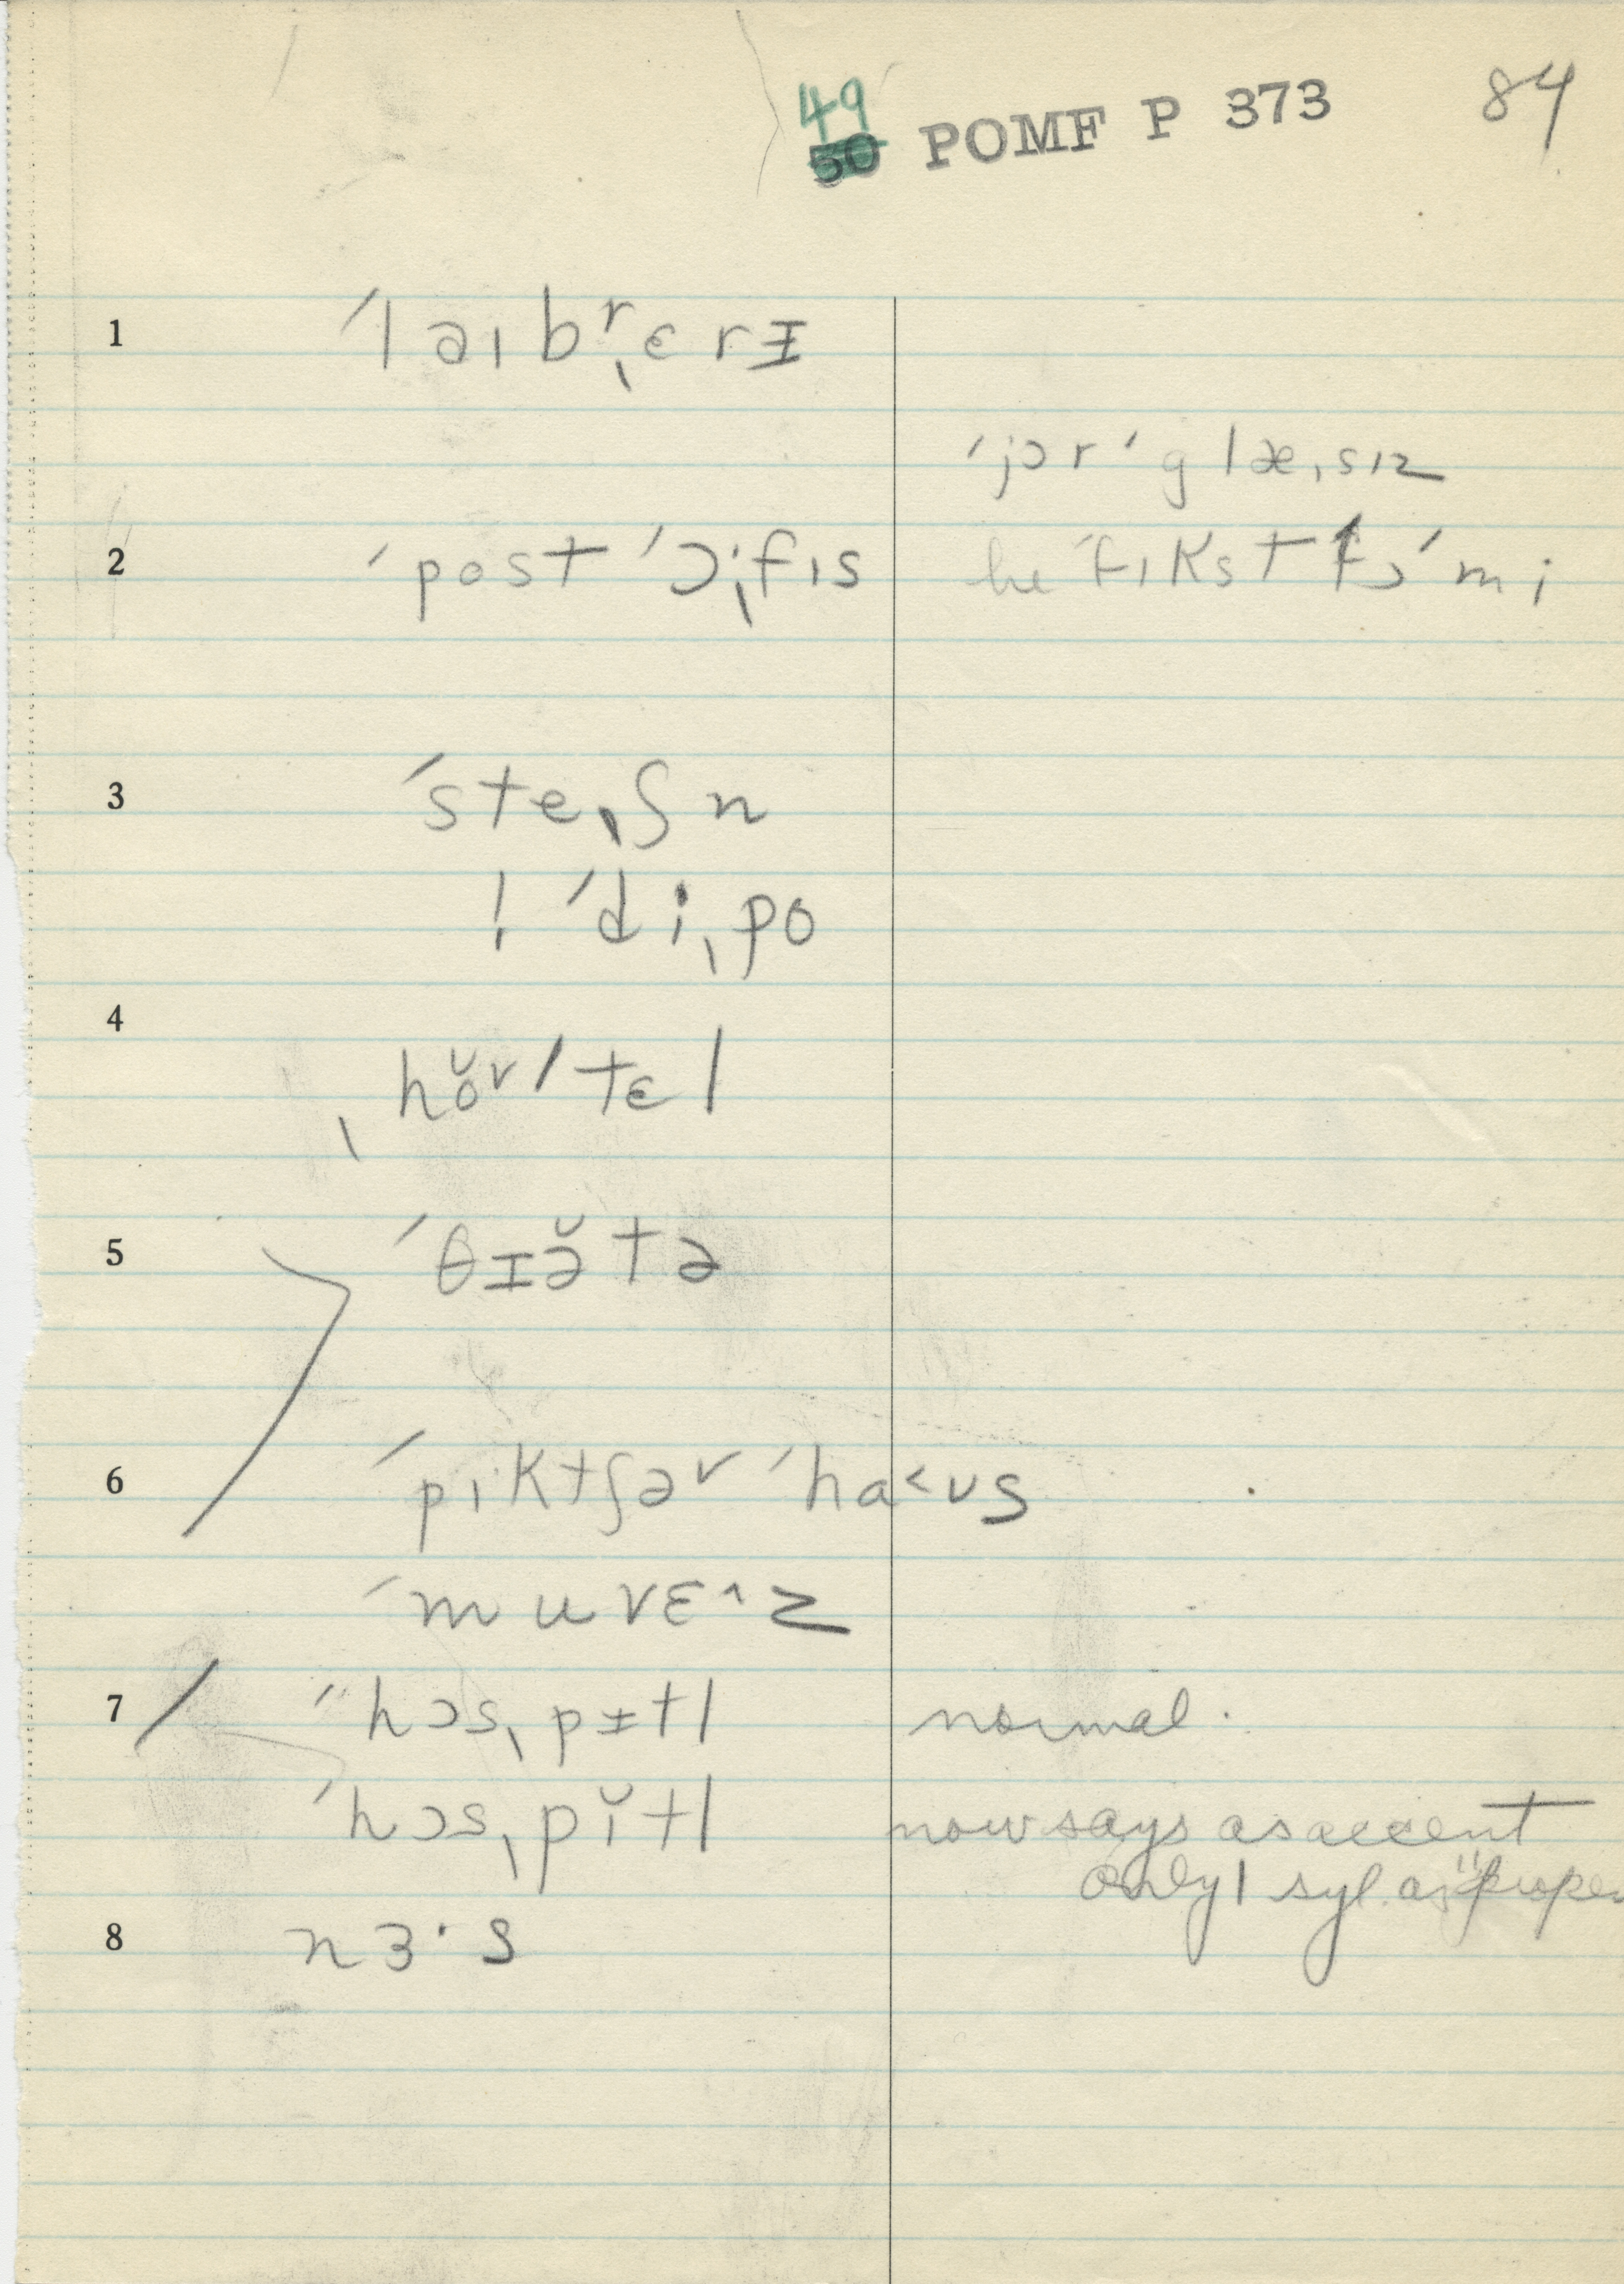 49
50 POMF P 373 84
1 ˈlaɪbʳˌɛrɪ
ˈjɔr ˈglæˌsɪz
2 ˈpost ˈɔ·ˌfɪs he ˈfɪkst fɔ ˈmi
3 ˈsteˌʃn
! ˈdiˌpo
4 ˌhŏᵛˈtɛl
5 ˈθɪə̆tə
6 ˈpɪktʃəᵛ ˈha˂ʊs
ˈmuvɛ^z
7 ˈˈhɔsˌpɪtl normal.
ˈhɔsˌpĭtl now says as accent
only 1 syl. as "proper
8 nɜ·s